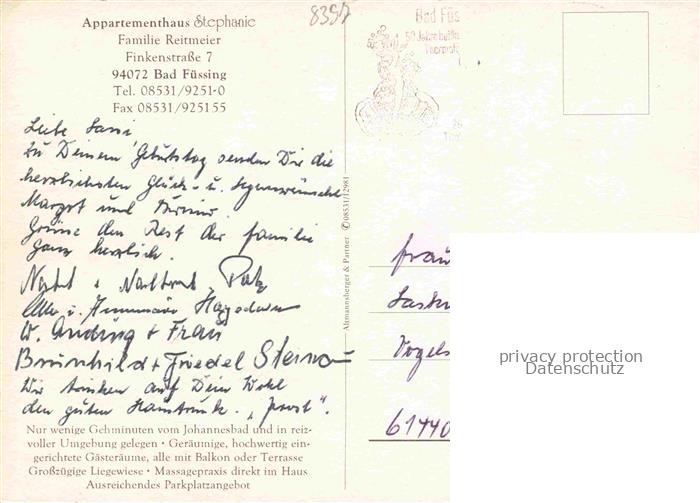 Appartementhaus Stephanie
Familie Reitmeier
Finkenstraße 7
94072 Bad Füssing
Tel. 08531/9251-0
Fax 08531/925155
8397
Bad Füs
50 Jahre
Thermal
Liebe Sassi,
zu Deinem Geburtstag senden Dir die
herzlichsten Glück- u. Segenswünsche
Margot und Werner.
Grüsse den Rest der Familie
ganz herzlich.
+ Waltraut
u. Annemarie Hagedorn
W. Anding + Frau
Brünhild + Friedel Stein
Wir trinken auf Dein Wohl
den guten Haustrunk. „Prost".
Nur wenige Gehminuten vom Johannesbad und in reiz-
voller Umgebung gelegen · Geräumige, hochwertig ein-
gerichtete Gästeräume, alle mit Balkon oder Terrasse
Großzügige Liegewiese · Massagepraxis direkt im Haus
Ausreichendes Parkplatzangebot
Altmannsberger & Partner ✆ 08531/12981
Frau
Sask
Vogels
61440
privacy protection
Datenschutz